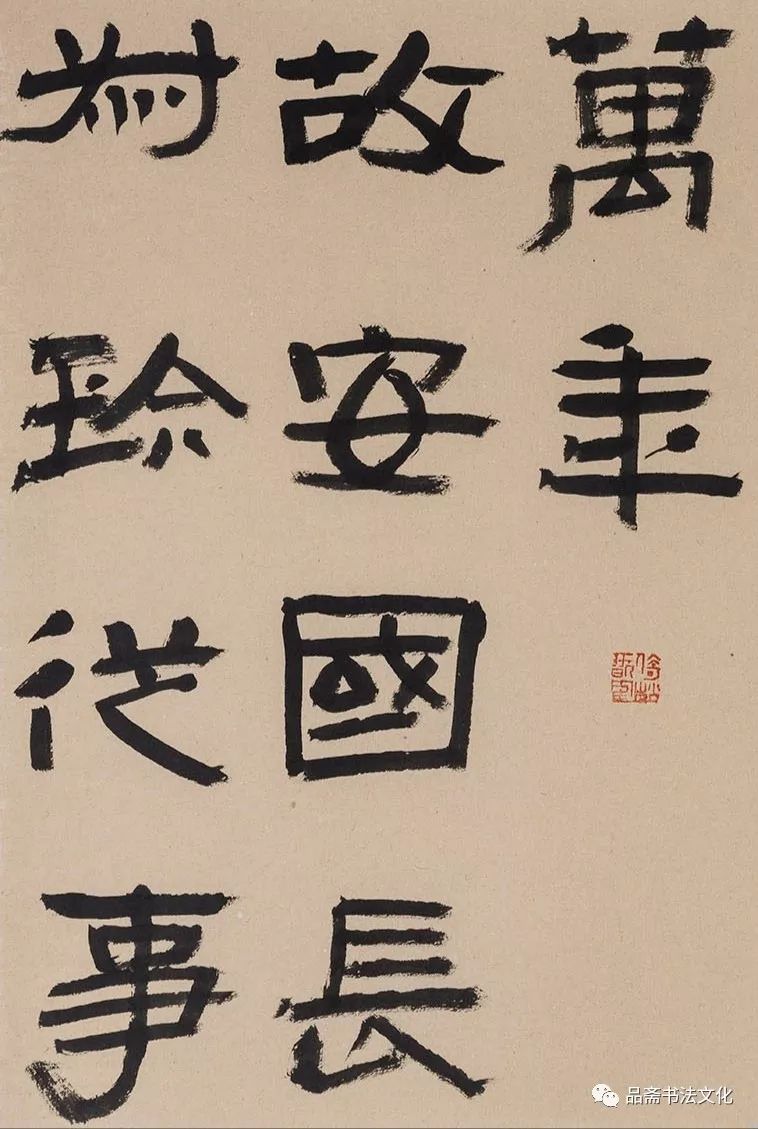 萬年
故安國長
珍從事
品斋书法文化